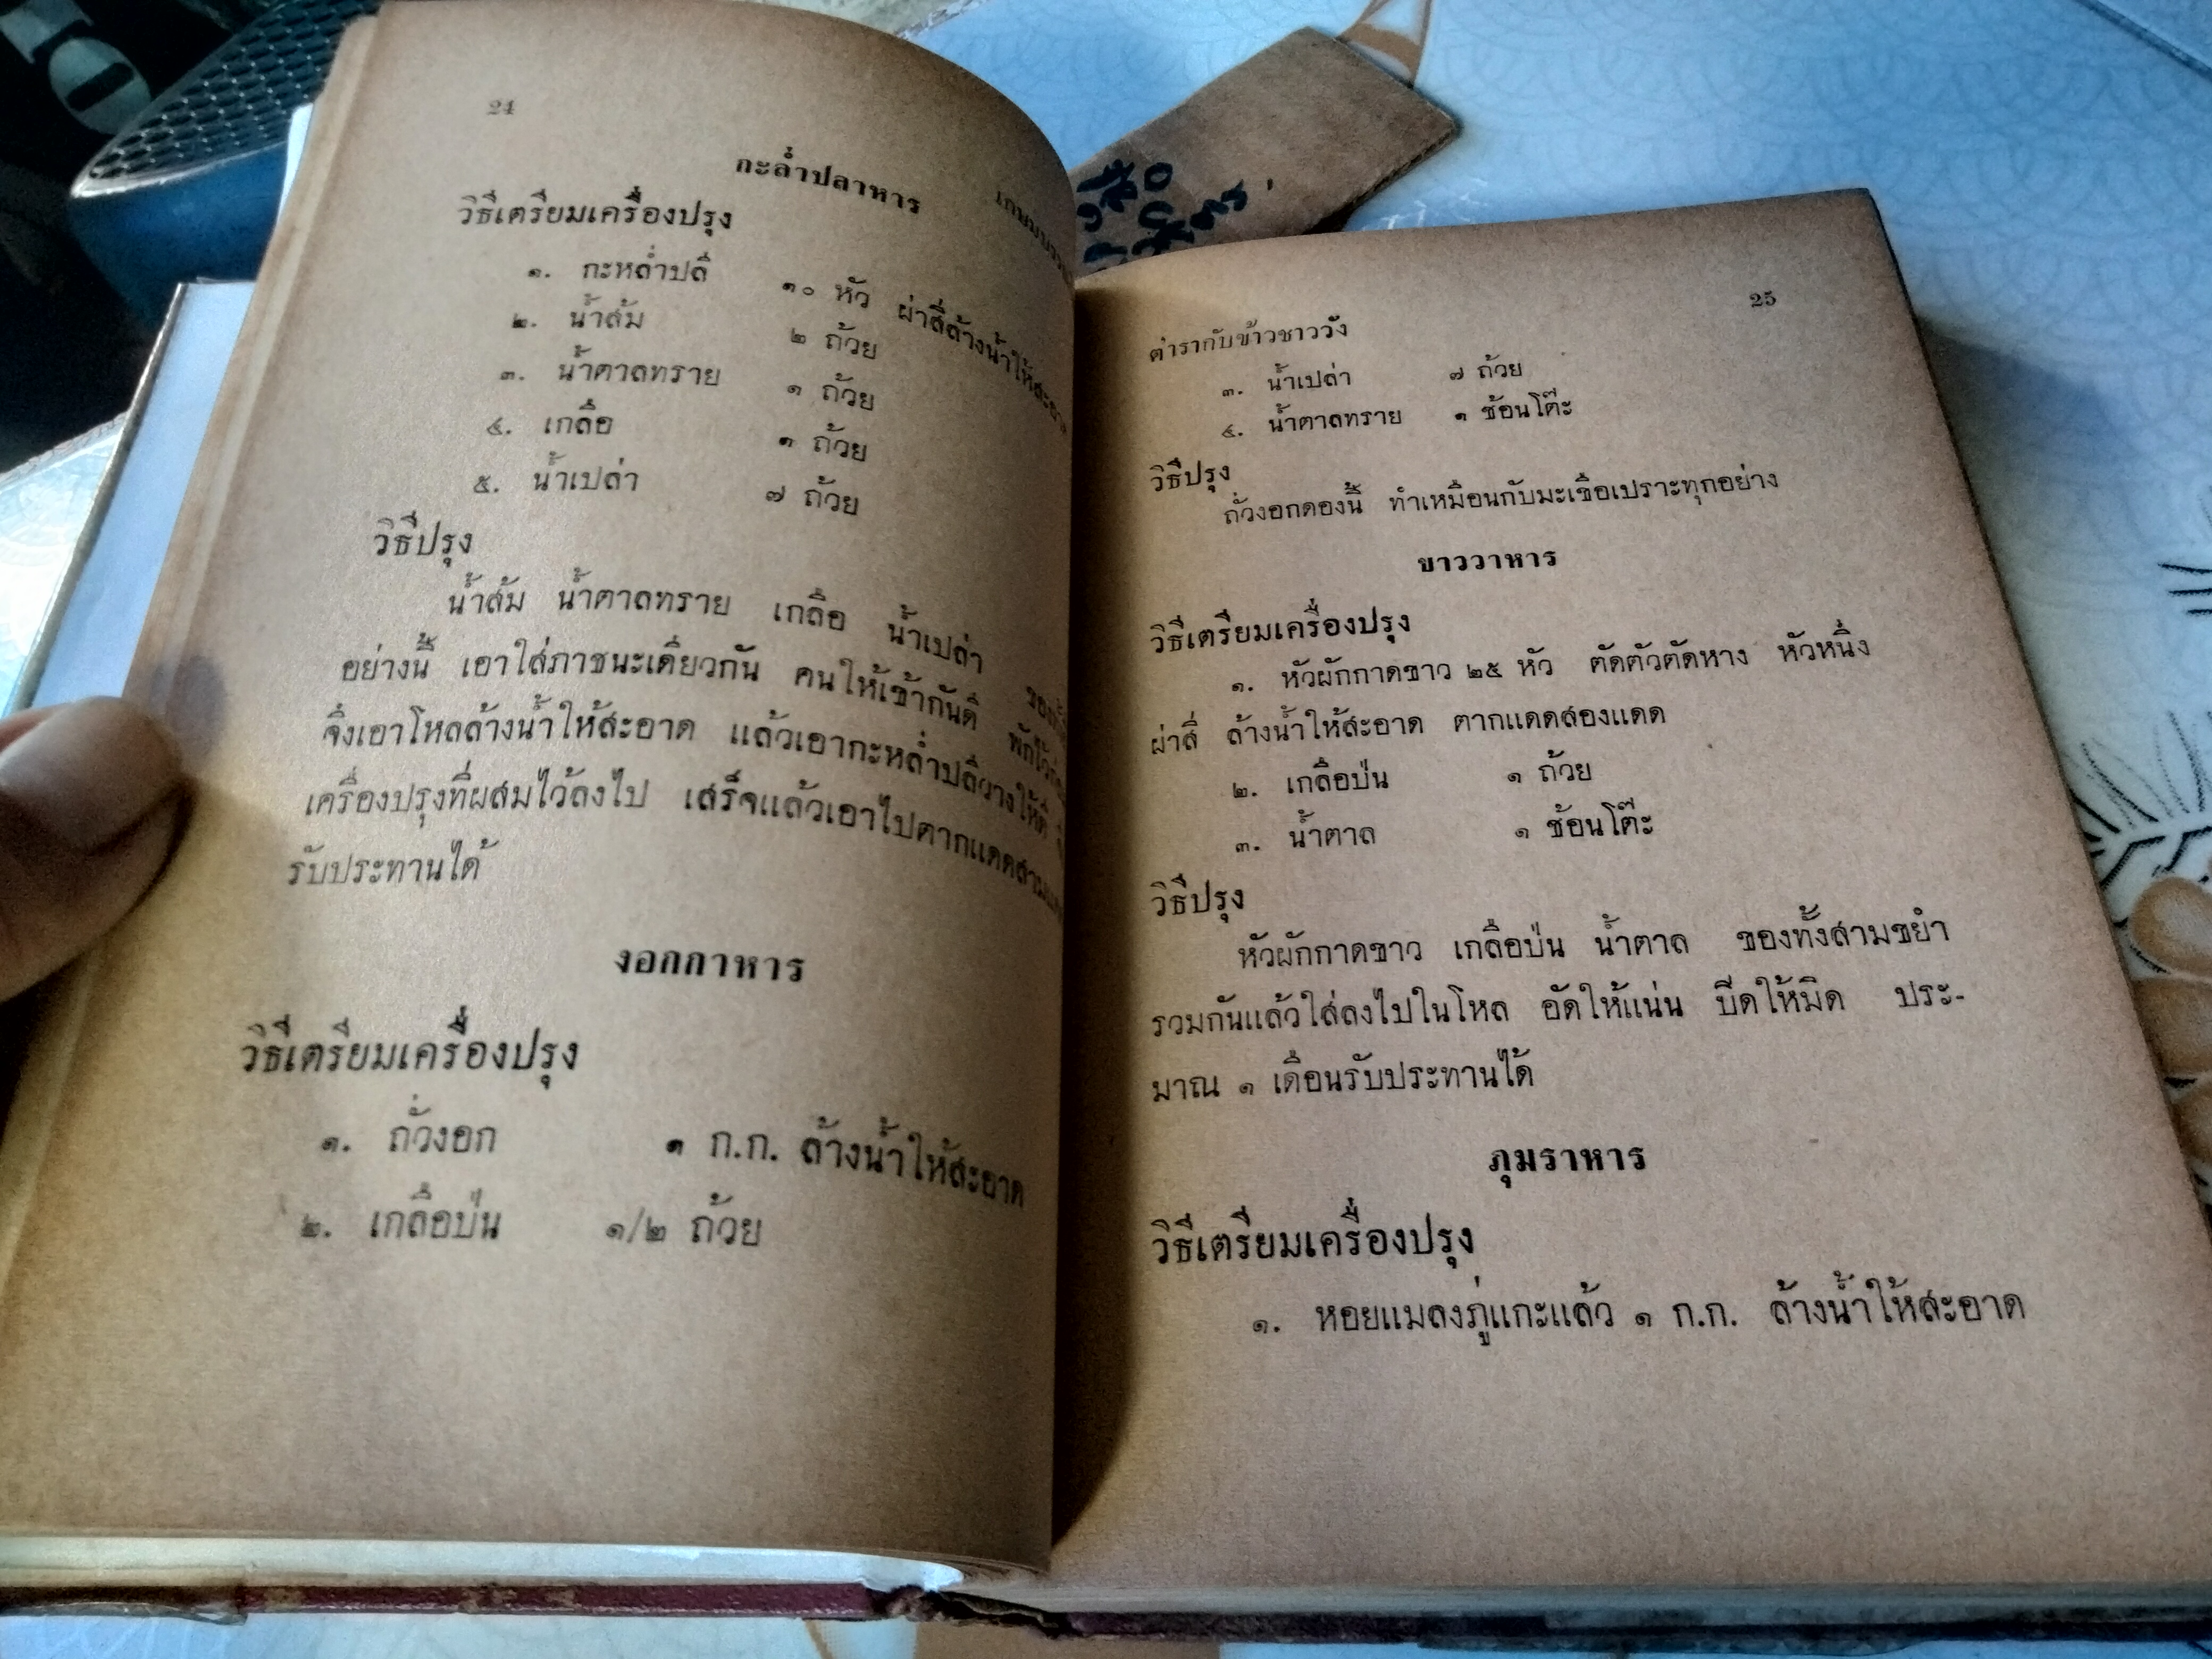 24
กะล่ำปลาหาร
วิธีเตรียมเครื่องปรุง
๑. กะหล่ำปลี ๑๐ หัว ผ่าสี่ล้างน้ำให้สะอาด
๒. น้ำส้ม ๒ ถ้วย
๓. น้ำตาลทราย ๑ ถ้วย
๔. เกลือ ๑ ถ้วย
๕. น้ำเปล่า ๗ ถ้วย
วิธีปรุง
น้ำส้ม น้ำตาลทราย เกลือ น้ำเปล่า
อย่างนี้ เอาใส่ภาชนะเดียวกัน คนให้เข้ากันดี
จึงเอาโหลล้างน้ำให้สะอาด แล้วเอากะหล่ำปลีวางให้ดี
เครื่องปรุงที่ผสมไว้ลงไป เสร็จแล้วเอาไปตากแดด
รับประทานได้
งอกกาหาร
วิธีเตรียมเครื่องปรุง
๑. ถั่วงอก ๑ ก.ก. ล้างน้ำให้สะอาด
๒. เกลือป่น ๑/๒ ถ้วย
ตำรากับข้าวชาววัง 25
๓. น้ำเปล่า ๗ ถ้วย
๔. น้ำตาลทราย ๑ ช้อนโต๊ะ
วิธีปรุง
ถั่วงอกดองนี้ ทำเหมือนกับมะเขือเปราะทุกอย่าง
ขาววาหาร
วิธีเตรียมเครื่องปรุง
๑. หัวผักกาดขาว ๒๕ หัว ตัดตัวตัดหาง หัวหนึ่ง
ผ่าสี่ ล้างน้ำให้สะอาด ตากแดดสองแดด
๒. เกลือป่น ๑ ถ้วย
๓. น้ำตาล ๑ ช้อนโต๊ะ
วิธีปรุง
หัวผักกาดขาว เกลือป่น น้ำตาล ของทั้งสามขยำ
รวมกันแล้วใส่ลงไปในโหล อัดให้แน่น ปีดให้มิด ประ-
มาณ ๑ เดือนรับประทานได้
ภุมราหาร
วิธีเตรียมเครื่องปรุง
๑. หอยแมลงภู่แกะแล้ว ๑ ก.ก. ล้างน้ำให้สะอาด